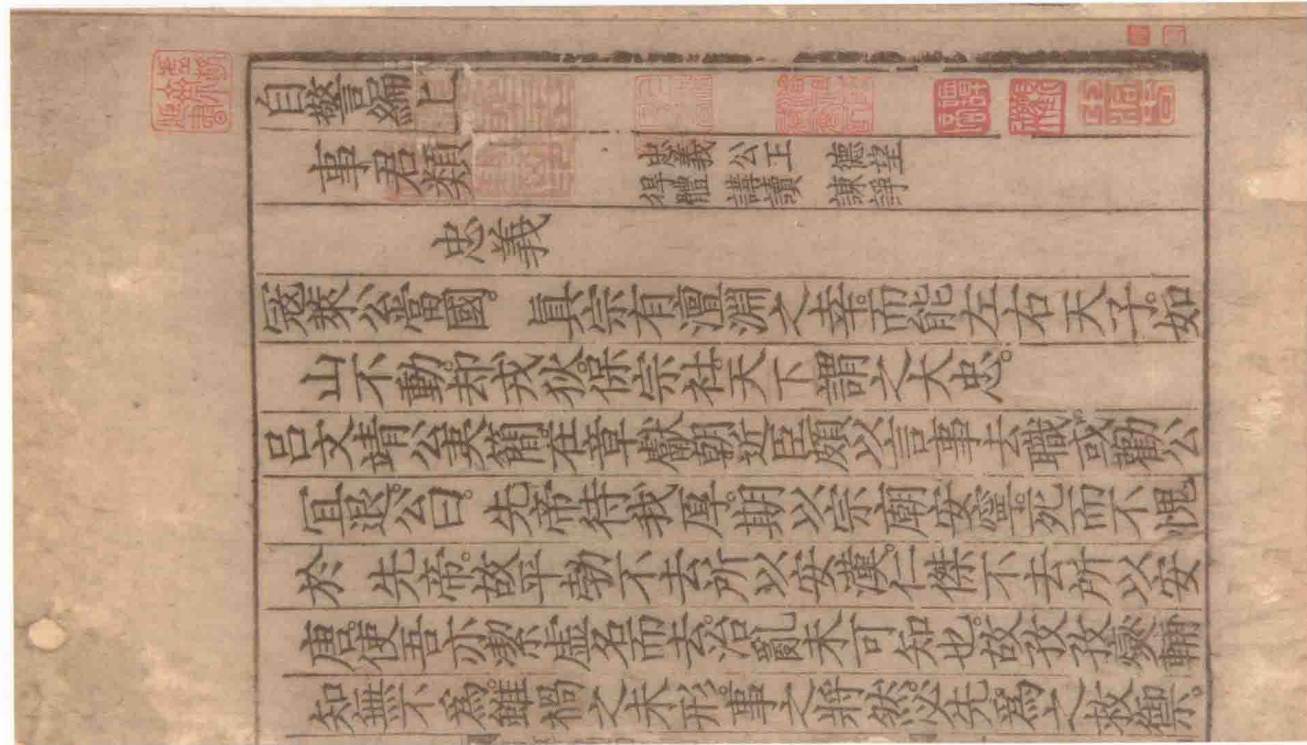 自警編
事君類 忠義 公正 德望
得體 講讀 諫諍
忠義
寇萊公當國。 真宗有澶淵之幸。而能左右天子。如
山不動。却戎狄。保宗社。天下謂之大忠。
呂文靖公夷簡在章獻朝。近臣頗以言事去職。或勸公
宜退。公曰。 先帝待我厚。期以宗廟安寧。死而不愧
於 先帝。故平勃不去。所以安漢。仁傑不去。所以安
唐。使吾亦潔虛名而去。治亂未可知也。故孜孜燮輔
知無不爲。雖禍之未形。事之將然。必先爲之救禦。